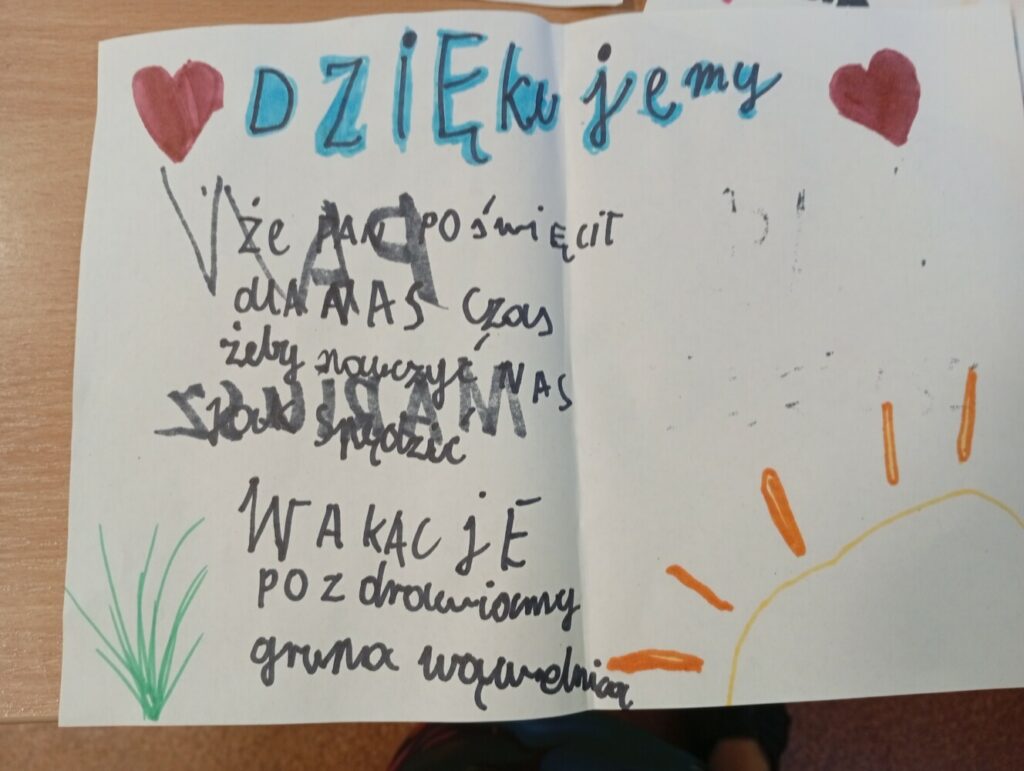 DZIĘkujemy
że PAN POświĘcił
dlA NAS Czas
żeby nauczyć NAS
spędzić
WAKĄCjE
POZdrawiamy
grupa